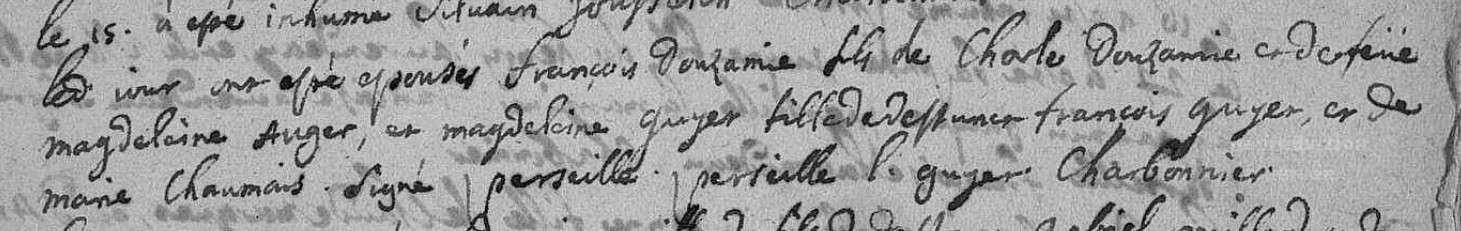 le 15. a esté inhumé Silvain
led. iour ont esté epousés françois Douzamie fils de Charle Douzamie et de feüe
magdeleine Auger, et magdeleine guyer fille de deffunct françois guyer, et de
marie Chaumais. Signé perseille. perseille l. guyer. Charbonnier.